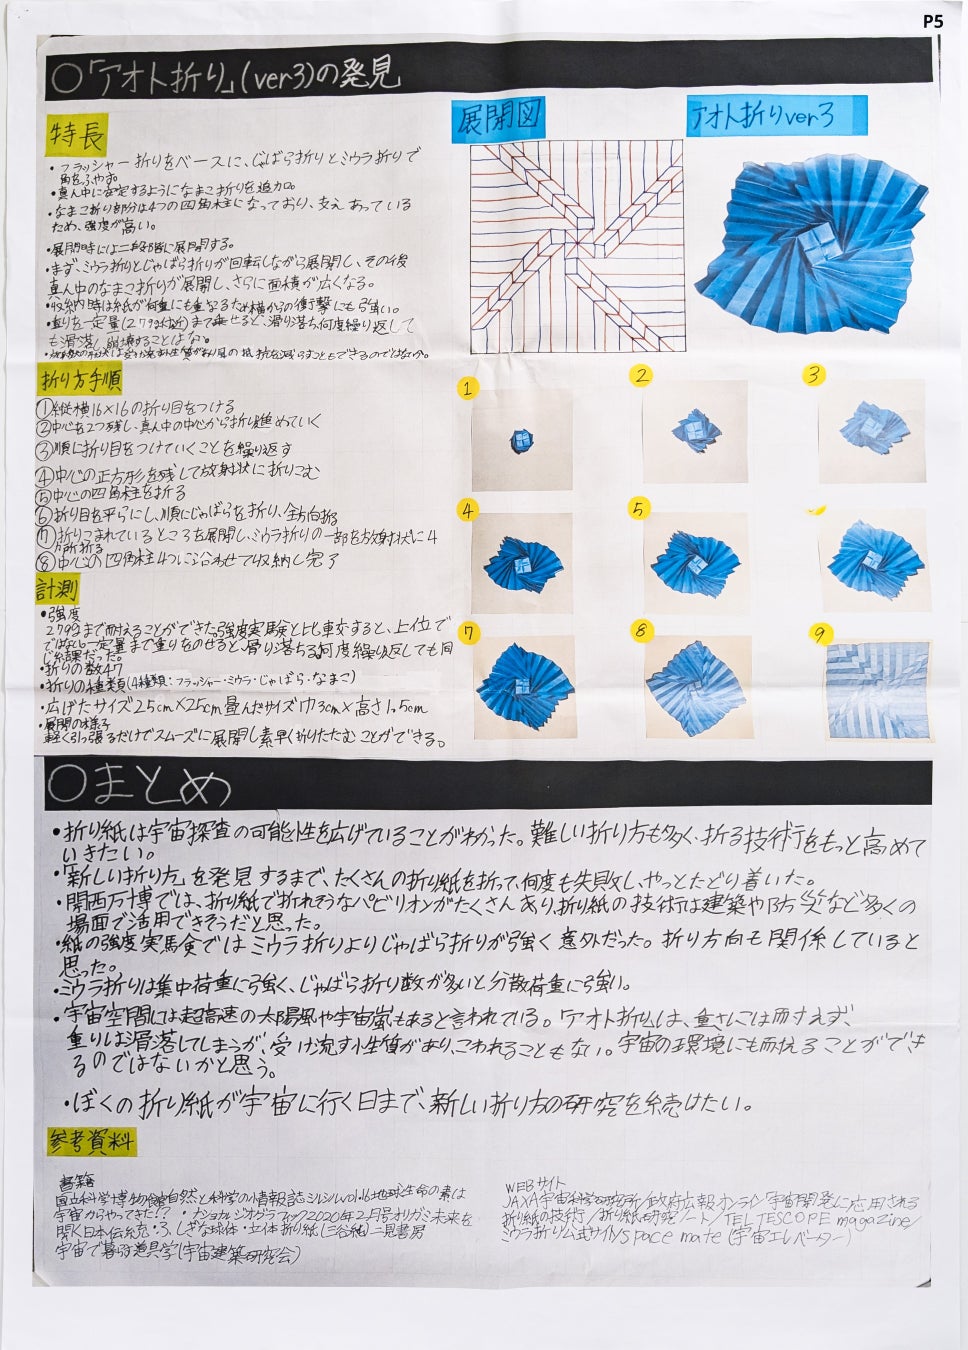 P5
○「アオト折り」(ver3)の発見
特長
・フラッシャー折りをベースに、じゃばら折りとミウラ折りで
角をふやす。
・真人中に安定するようになまこ折りを追加。
・なまこ折り部分は4つの四角柱になっており、支えあっている
ため、強度が高い。
・展開時には二段階に展開する。
・まず、ミウラ折りとじゃばら折りが回転しながら展開し、その後
真人中のなまこ折りが展開し、さらに面積が広くなる。
・収納時は紙が何重にも重なるため横からの衝撃にも強い。
・重りを一定量(279g付近)まで乗せると、滑り落ち何度繰り返して
も滑落し崩壊することはな。
折り方手順
①縦横16×16の折り目をつける
②中心を2つ残し、真人中の中心から折り進めていく
③順に折り目をつけていくことを繰り返す
④中心の正方形を残して放射状に折りこむ
⑤中心の四角柱を折る
⑥折り目を平らにし、順にじゃばらを折り、全方向折る
⑦折りこまれているところを展開し、ミウラ折りの一部を放射状に4
カ所折る
⑧中心の四角柱4つに沿わせて収納し完了
計測
・強度
279gまで耐えることができた。強度実験と比較すると、上位で
ではない一定量まで重りをのせると、滑り落ちる何度繰り返しても同
じ結果だった。
・折りの数47
・折りの種類(4種類:フラッシャー・ミウラ・じゃばら・なまこ)
・広げたサイズ25cm×25cm畳んだサイズ巾3cm×高さ1,5cm
・展開の様子
軽く引っ張るだけでスムーズに展開し素早く折りたたむことができる。
展開図
アオト折りver3
1
2
3
4
5
7
8
9
○まとめ
・折り紙は宇宙探査の可能性を広げていることがわかった。難しい折り方も多く、折る技術をもっと高めて
いきたい。
・「新しい折り方」を発見するまで、たくさんの折り紙を折って、何度も失敗し、やっとたどり着いた。
・関西万博では、折り紙で折れそうなパビリオンがたくさんあり、折り紙の技術は建築や防災など多くの
場面で活用できそうだと思った。
・紙の強度実験ではミウラ折りよりじゃばら折りが強く意外だった。折り方向も関係していると
思った。
・ミウラ折りは集中荷重に強く、じゃばら折り数が多いと分散荷重に強い。
・宇宙空間には超高速の太陽風や宇宙嵐もあると言われている。「アオト折り」は、重さには耐えず、
重りは滑落してしまうが、受け流す性質があり、こわれることもない。宇宙の環境にも耐えることができ
るのではないかと思う。
・ぼくの折り紙が宇宙に行く日まで、新しい折り方の研究を続けたい。
参考資料
書籍
国立科学博物館自然と科学の情報誌ミルシルvol.16地球生命の素は
宇宙からやってきた!?・ナショナルジオグラフィック2020年2月号オリガミ未来を
開く日本伝統・ふしぎな球体・立体折り紙(三谷純)二見書房
宇宙で暮らす道具学(宇宙建築研究会)
WEBサイト
JAXA宇宙科学研究所/政府広報オンライン「宇宙開発に応用される
折り紙の技術/折り紙研究ノート/TELTESCOPE magazine/
ミウラ折り公式サイト/space mate(宇宙エレベーター)